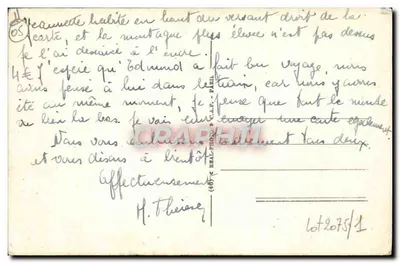 05
Jeannette habite en haut du versant droit de la
carte, et la montagne plus élevée n'est pas dessus
je l'ai dessinée à l'encre.
4€ J'espère qu'Edmond a fait bon voyage, nous
avons pensé à lui dans le train, car nous y avons
été au même moment, je pense que tout le monde
va bien là bas. Je vais envoyer une carte également.
Nous vous embrassons tendrement tous deux.
et vous disons à bientôt
Affectueusement
M. Thérèse
lot 2075/1
CPARAMA